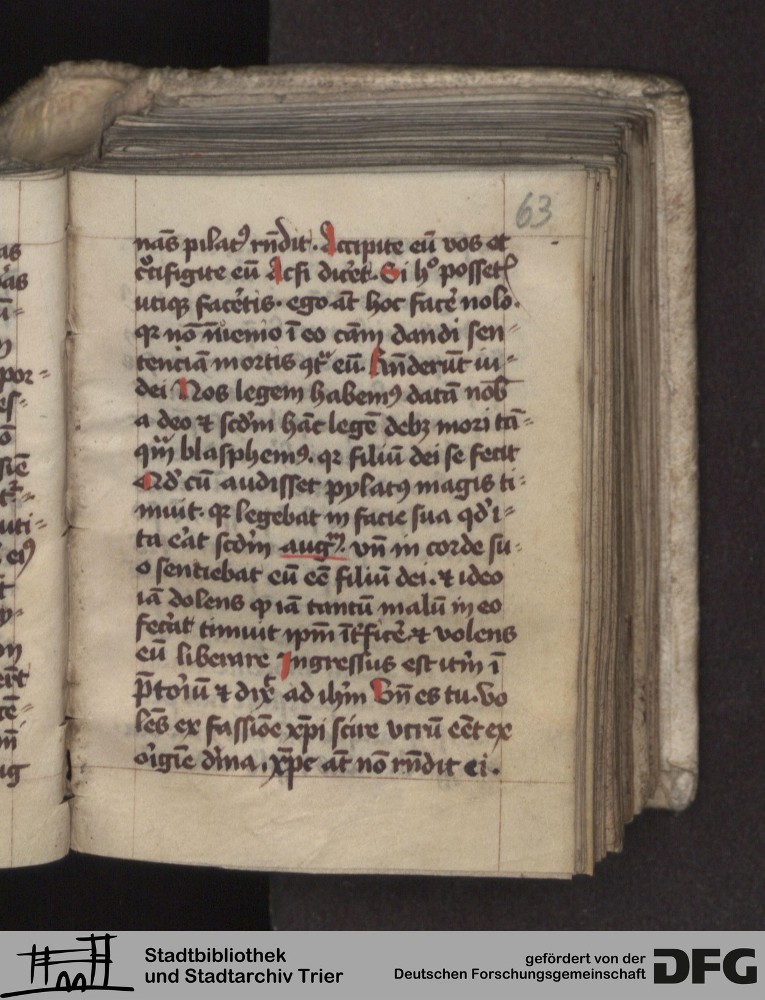 63
nās pilatꝰ rn̄dit. Accipite eū vos et
cͦcifigite eū Acsi dicēt. Si hͦ possetꝭ
utiqꝫ facētis. ego āt hoc facē nolo.
qꝛ nō īuenio ī eo cām dandi sen⸗
tenciā mortis ꝯtͣ eū. Rn̄derūt iu⸗
dei Nos legem habemꝰ datā nob̄
a deo ⁊ scd̄m hāc legē debꝫ mori tā⸗
qͣꝫ blasphemꝰ. qꝛ filiū dei se fecit
cū audisset pylatꝰ magis ti⸗
muit. qꝛ legebat in facie sua qd̓ i⸗
ta erat scd̄m augꝰ. vn̄ in corde su⸗
o sentiebat eū eē filiū dei. ⁊ ideo
iā dolens ꝙ iā tantū malū in eo
fecāt timuit ip̄m īt̄ficē. ⁊ volens
eū liberare Ingressus est itm̄ ī
p̄toriū ⁊ dixͭ ad ih̄m Vn̄ es tu. Vo
lēs ex fassiōe xp̄i scire vtrū eēt ex
oīgīe d̓ina. xp̄c āt nō rn̄dit ei.
as
por⸗
uti⸗
Stadtbibliothek
und Stadtarchiv Trier
gefördert von der
Deutschen Forschungsgemeinschaft
DFG